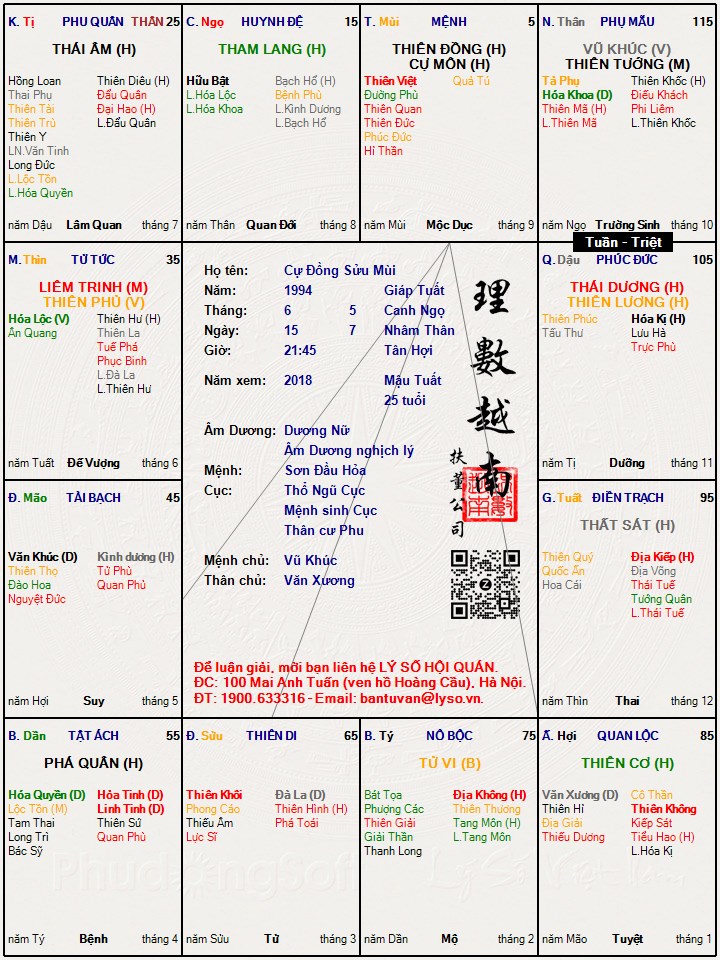 K. Tị PHU QUÂN THÂN 25
THÁI ÂM (H)
Hồng Loan Thiên Diêu (H)
Thai Phụ Đẩu Quân
Thiên Tài Đại Hao (H)
Thiên Trù L.Đẩu Quân
Thiên Y
LN.Văn Tinh
Long Đức
L.Lộc Tồn
L.Hóa Quyền
năm Dậu Lâm Quan tháng 7
C. Ngọ HUYNH ĐỆ 15
THAM LANG (H)
Hữu Bật Bạch Hổ (H)
L.Hóa Lộc Bệnh Phù
L.Hóa Khoa L.Kình Dương
L.Bạch Hổ
năm Thân Quan Đới tháng 8
T. Mùi MỆNH 5
THIÊN ĐỒNG (H)
CỰ MÔN (H)
Thiên Việt Quả Tú
Đường Phù
Thiên Quan
Thiên Đức
Phúc Đức
Hỉ Thần
năm Mùi Mộc Dục tháng 9
N. Thân PHỤ MẪU 115
VŨ KHÚC (V)
THIÊN TƯỚNG (M)
Tả Phụ Thiên Khốc (H)
Hóa Khoa (D) Điếu Khách
Thiên Mã (H) Phi Liêm
L.Thiên Mã L.Thiên Khốc
năm Ngọ Trường Sinh tháng 10
Tuần - Triệt
M. Thìn TỬ TỨC 35
LIÊM TRINH (M)
THIÊN PHỦ (V)
Hóa Lộc (V) Thiên Hư (H)
Ân Quang Thiên La
Tuế Phá
Phục Binh
L.Đà La
L.Thiên Hư
năm Tuất Đế Vượng tháng 6
Họ tên: Cự Đồng Sửu Mùi
Năm: 1994 Giáp Tuất
Tháng: 6 5 Canh Ngọ
Ngày: 15 7 Nhâm Thân
Giờ: 21:45 Tân Hợi
Năm xem: 2018 Mậu Tuất
25 tuổi
Âm Dương: Dương Nữ
Âm Dương nghịch lý
Mệnh: Sơn Đầu Hỏa
Cục: Thổ Ngũ Cục
Mệnh sinh Cục
Thân cư Phu
Mệnh chủ: Vũ Khúc
Thân chủ: Văn Xương
理數越南
扶董公司
Để luận giải, mời bạn liên hệ LÝ SỐ HỘI QUÁN.
ĐC: 100 Mai Anh Tuấn (ven hồ Hoàng Cầu), Hà Nội.
ĐT: 1900.633316 - Email: bantuvan@lyso.vn.
Q. Dậu PHÚC ĐỨC 105
THÁI DƯƠNG (H)
THIÊN LƯƠNG (H)
Thiên Phúc Hóa Kị (H)
Tấu Thư Lưu Hà
Trực Phù
năm Tị Dưỡng tháng 11
Đ. Mão TÀI BẠCH 45
Văn Khúc (D) Kình dương (H)
Thiên Thọ Tử Phù
Đào Hoa Quan Phủ
Nguyệt Đức
năm Hợi Suy tháng 5
G. Tuất ĐIỀN TRẠCH 95
THẤT SÁT (H)
Thiên Quý Địa Kiếp (H)
Quốc Ấn Địa Võng
Hoa Cái Thái Tuế
Tướng Quân
L.Thái Tuế
năm Thìn Thai tháng 12
B. Dần TẬT ÁCH 55
PHÁ QUÂN (H)
Hóa Quyền (D) Hỏa Tinh (D)
Lộc Tồn (M) Linh Tinh (D)
Tam Thai Thiên Sứ
Long Trì Quan Phù
Bác Sỹ
năm Tý Bệnh tháng 4
Đ. Sửu THIÊN DI 65
Thiên Khôi Đà La (D)
Phong Cáo Thiên Hình (H)
Thiếu Âm Phá Toái
Lực Sĩ
năm Sửu Tử tháng 3
B. Tý NÔ BỘC 75
TỬ VI (B)
Bát Tọa Địa Không (H)
Phượng Các Thiên Thương
Thiên Giải Tang Môn (H)
Giải Thần L.Tang Môn
Thanh Long
năm Dần Mộ tháng 2
Ấ. Hợi QUAN LỘC 85
THIÊN CƠ (H)
Văn Xương (D) Cô Thần
Thiên Hỉ Thiên Không
Địa Giải Kiếp Sát
Thiếu Dương Tiểu Hao (H)
L.Hóa Kị
năm Mão Tuyệt tháng 1